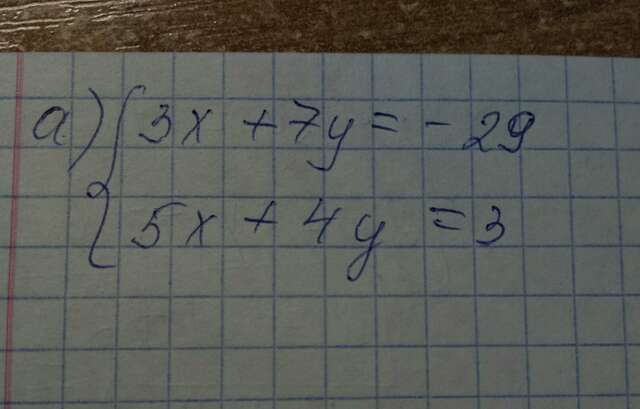 а) { 3x + 7y = - 29
5x + 4y = 3